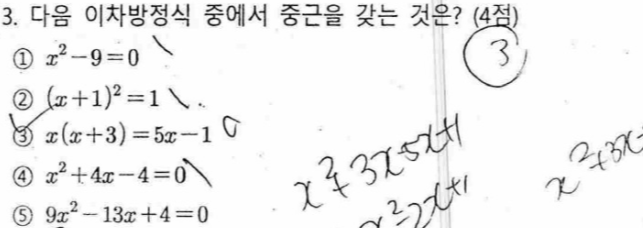 3. 다음 이차방정식 중에서 중근을 갖는 것은? (4점)
① x²-9=0
② (x+1)²=1
③ x(x+3)=5x-1
④ x²+4x-4=0
⑤ 9x²-13x+4=0
3
x²+3x-5x+1
x²-2x+1
x²+3x-